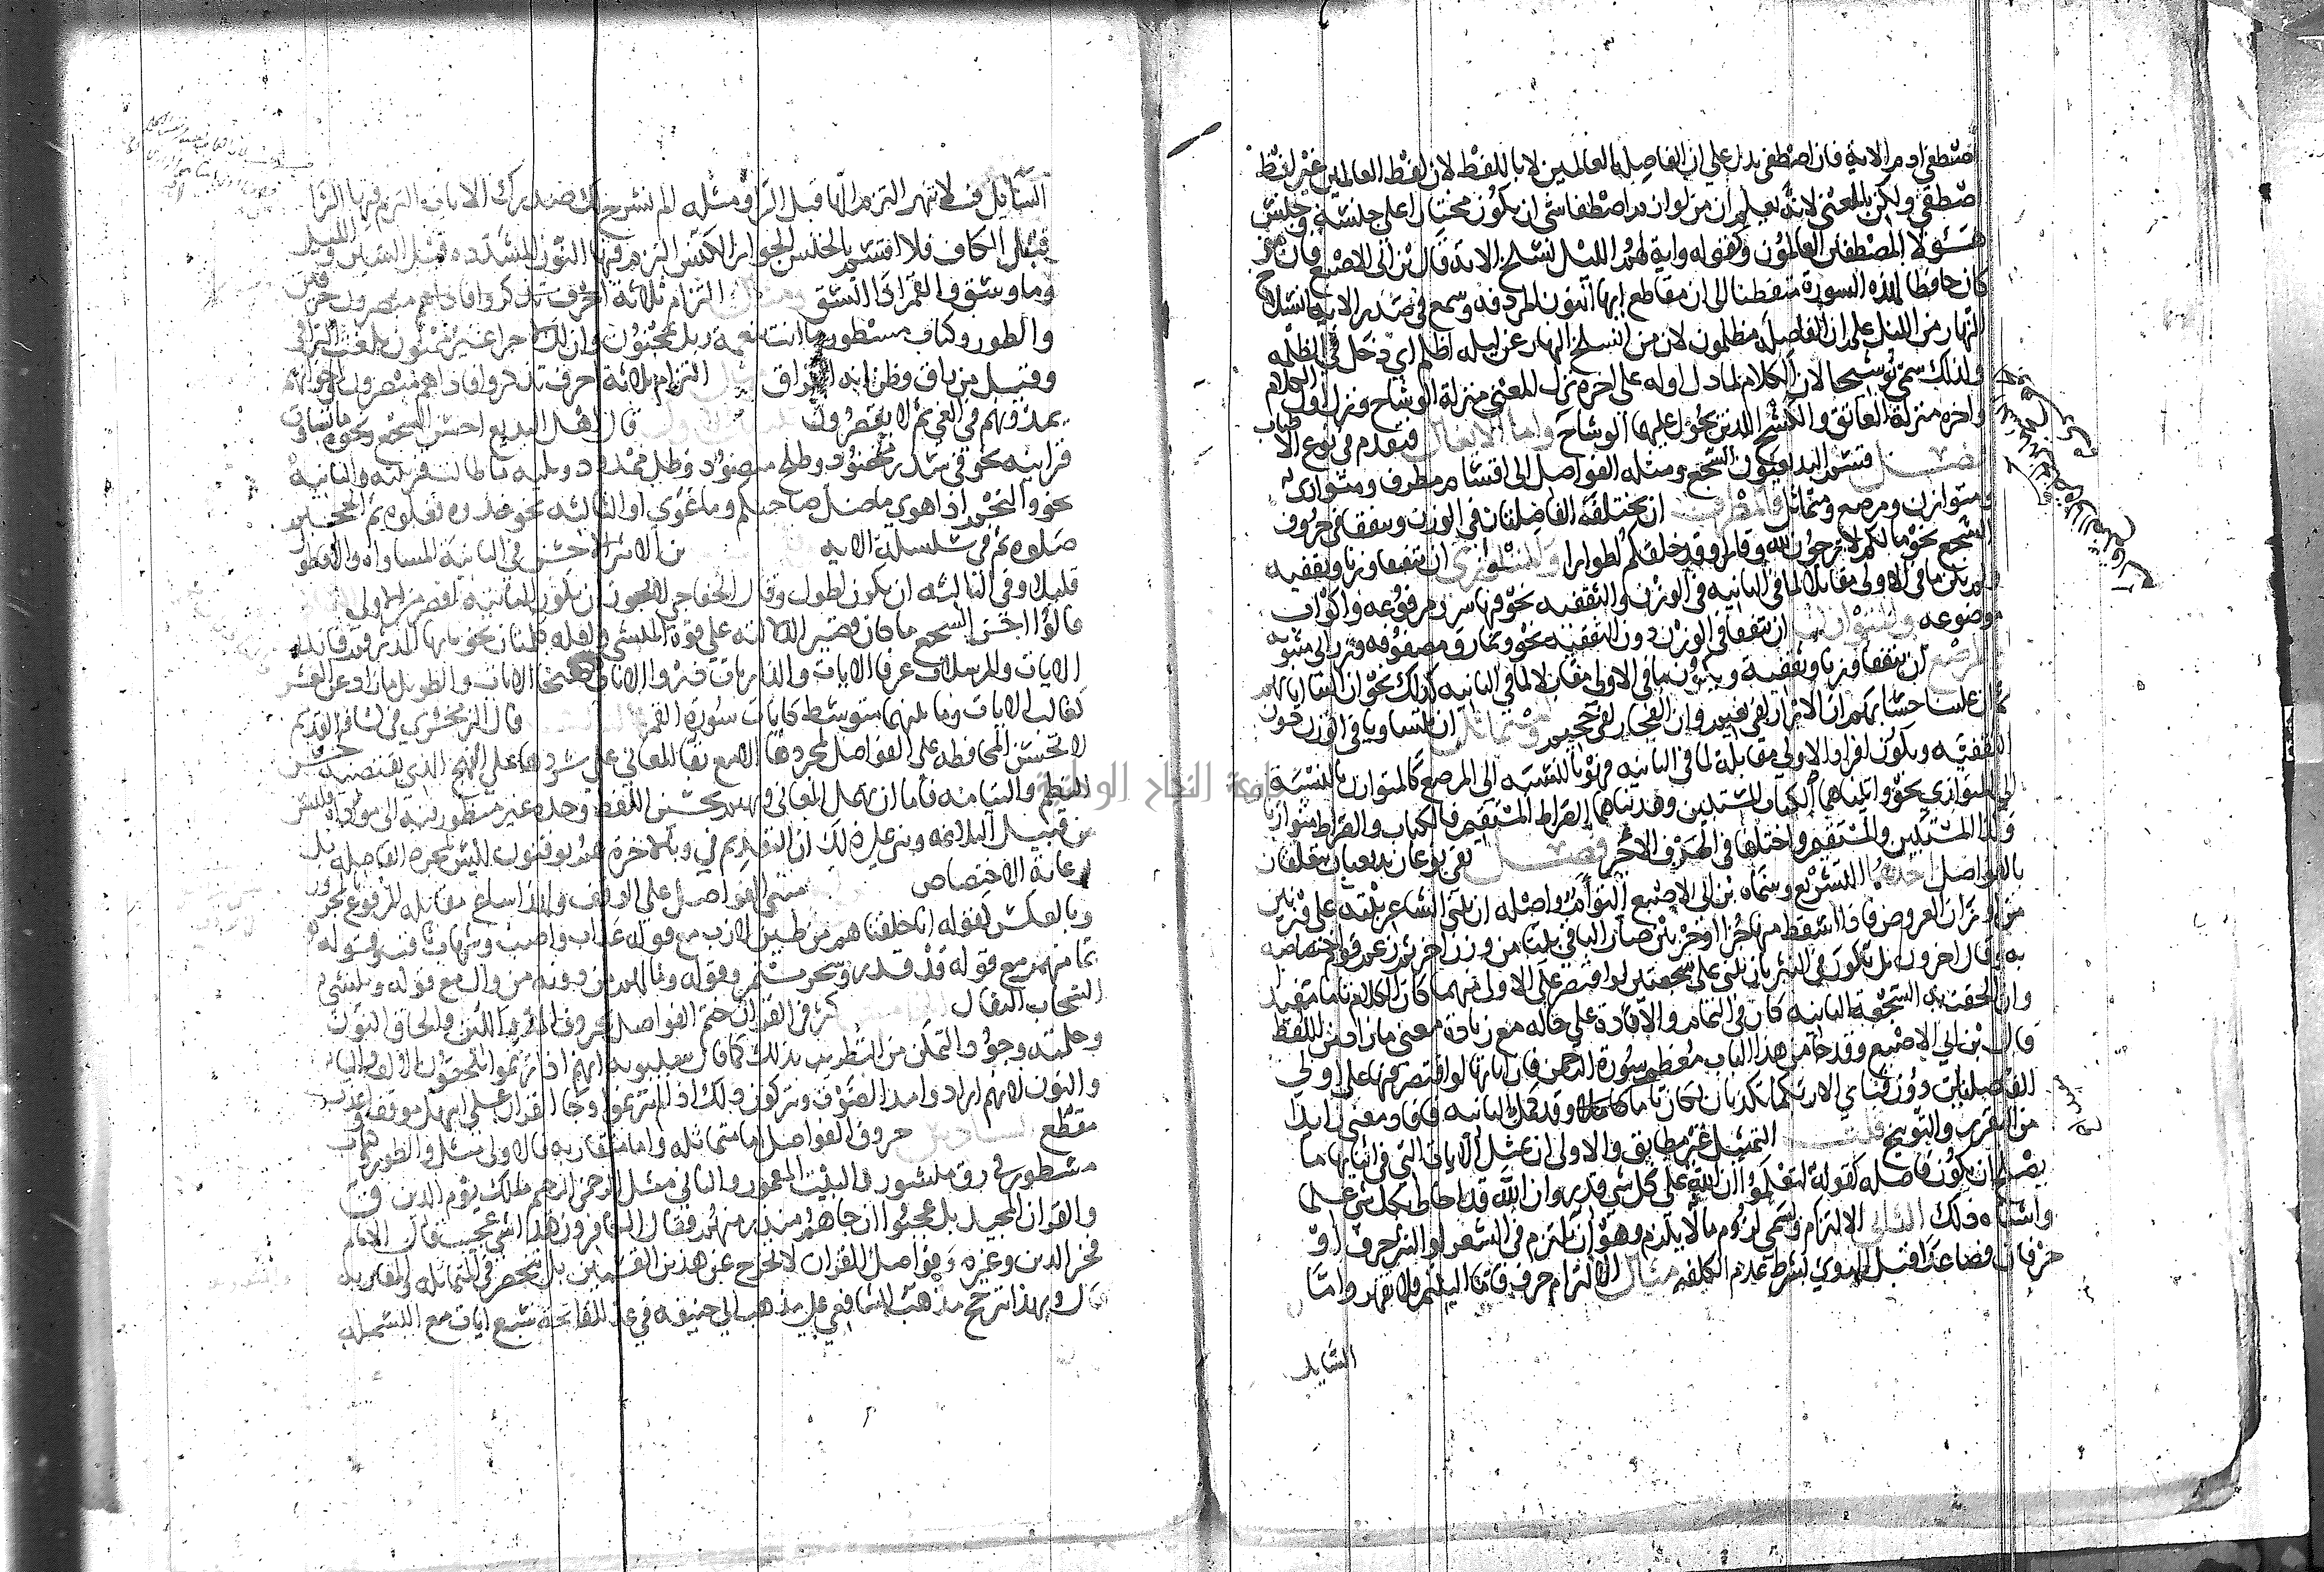 اصطفى ادم الاية فان اصطفى يدل على ان الفاصلة العالمين لا باللفظ لان لفظ العالمين غير لفظ
اصطفى ولكن بالمعنى لانه يعلم ان من لوازم اصطفا شي ان يكون مختارا على جنسه وجنس
هؤلا المصطفين العالمون وكقوله واية لهم الليل نسلخ الاية قال بن ابي الاصبع فان من
كان حافظا لهذه السورة متفطنا الى ان مقاطع ايها النون المردفة وسمع في صدر الاية انسلاخ
النهار من الليل علم ان الفاصلة مظلمون لان من انسلخ النهار عن ليله اظلم اي دخل في الظلمه
ولذلك سمي توشيحا لان الكلام لما دل اوله على اخره نزل المعنى منزلة الوشاح ونزل اول الكلام
واخره منزلة العاتق والكشح اللذين يحول عليهما الوشاح واما الايغال فتقدم في نوع الاطناب
فصل قسم البديعيون السجع ومثله الفواصل الى اقسام مطرف ومتوازى
ومتوازن ومرصع ومتماثل فالمطرف ان يختلف الفاصلتان في الوزن ويتفقا في حروف
السجع نحو ما لكم لا ترجون لله وقارا وقد خلقكم اطوارا والمتوازى ان يتفقا وزنا وتقفيه
ولم يكن ما في الاولى مقابلا لما في الثانيه في الوزن والتقفيه نحو فيها سرر مرفوعه واكواب
موضوعه والمتوازن ان يتفقا في الوزن دون التقفيه نحو ونمارق مصفوفه وزرابي مبثوثه
والمرصع ان يتفقا وزنا وتقفية ويكون ما في الاولى مقابلا لما في الثانيه كذلك نحو ان الينا ايابهم
ثم ان علينا حسابهم ان الابرار لفي نعيم وان الفجار لفي جحيم والمتماثل ان يتساويا في الوزن دون
التقفيه ويكون افراد الاولى مقابلة لما في الثانيه فهو بالنسبة الى المرصع كالمتوازن بالنسبة
الى المتوازي نحو واتيناهما الكتاب المستبين وهديناهما الصراط المستقيم فالكتاب والصراط متوازنان
وكذا المستبين والمستقيم واختلفا في الحرف الاخير فصل بقي نوعان بديعيان يتعلقان
بالفواصل احدهما التشريع وسماه بن ابي الاصبع التوام واصله ان يبني الشاعر بيته على وزنين
من اوزان العروض فاذا اسقط منها جزءا او جزئين صار الباقي بيتا من وزن اخر ثم زعم قوم اختصاصه
به وقال اخرون بل يكون في النثر بان يبني على سجعتين لو اقتصر على الاولى منهما كان الكلام تاما مفيدا
وان الحقت به السجعة الثانيه كان في التمام والافادة على حاله مع زيادة معنى ما زاد من اللفظ
قال بن ابي الاصبع وقد جا من هذا الباب معظم سورة الرحمن فان اياتها لو اقتصر فيها على اولى
الفاصلتين دون فباي الا ربكما تكذبان لكان تاما وقد كمل بالثانيه فافاد معنى زايدا
من التقرير والتوبيخ قلت التمثيل غير مطابق والاولى ان يمثل بالايات التي في اثنايها ما
يصلح ان يكون فاصله كقوله لتعلموا ان الله على كل شي قدير وان الله قد احاط بكل شي علما
واشباه ذلك الثاني الالتزام ويسمى لزوم ما لا يلزم وهو ان يلتزم في الشعر او النثر حرف او
حرفان فصاعدا قبل الروي بشرط عدم الكلفه مثال التزام حرف فاما اليتيم فلا تقهر واما
السايل
السايل فلا تنهر التزم الها قبل الرا ومثله الم نشرح لك صدرك الايات التزم فيها الرا
قبل الكاف فلا اقسم بالخنس الجوار الكنس التزم فيها النون المشدده قبل السين والليل
وما وسق والقمر اذا اتسق ومثال التزام ثلاثة احرف تذكروا فاذا هم مبصرون
والطور وكتاب مسطور ما انت بنعمة ربك بمجنون وان لك لاجرا غير ممنون بلغت التراقي
وقيل من راق وظن انه الفراق التزام ثلاثة احرف تذكروا فاذا هم مبصرون واخوانهم
يمدونهم في الغي ثم لا يقصرون قال اهل البديع احسن السجع ونحوه ما تساوت
قراينه نحو في سدر مخضود وطلح منضود وظل ممدود ويليه ما طالت قرينته الثانية
نحو والنجم اذا هوى ما ضل صاحبكم وما غوى او الثالثه نحو خذوه فغلوه ثم الجحيم
صلوه ثم في سلسلة الايه بن الاثير الاحسن في الثانية المساواة والا فاطول
قليلا وفي الثالثه ان يكون اطول وقال الخفاجي لا يجوز ان يكون الثانيه اقصر من الاولى
قالوا احسن السجع ما كان قصيرا لدلالته على قوة المنشي واقله كلمتان نحو يا ايها المدثر قم فانذر
الايات والمرسلات عرفا الايات والذاريات ذروا الايات والعاديات ضبحا الايات والطويل ما زاد عن العشر
كغالب الايات وما بينهما متوسط كايات سورة القمر قال الزمخشري في كشافه القديم
لا تحسن المحافظه على الفواصل لمجردها الا مع بقا المعاني على سردها على النهج الذي يقتضيه حسن
النظم والتيامه فاما ان تهمل المعاني ويهتم بتحسين اللفظ وحده غير منظور فيه الى مؤداه فليس
من قبيل البلاغه وبني على ذلك ان التقديم في وبالاخرة هم يوقنون ليس لمجرد الفاصله بل
لرعاية الاختصاص مبنى الفواصل على الوقف ولهذا ساغ مقابله المرفوع بالمجرور
وبالعكس كقوله انا خلقناهم من طين لازب مع قوله عذاب واصب وشهاب ثاقب وقوله
بما منهمر مع قوله قد قدر وسحر مستمر وقوله وما لهم من دونه من وال مع قوله وينشئ
السحاب الثقال كثر في القران ختم الفواصل بحروف المد واللين والحاق النون
وحكمته وجود التمكن من التطريب بذلك كما قال سيبويه انهم اذا ترنموا يلحقون الالف واليا
والنون لانهم ارادوا مد الصوت ويتركون ذلك اذا لم يترنموا وجا القران على اسهل موقف واعذب
مقطع حروف الفواصل اما متماثله واما متقاربه فالاولى مثل والطور وكتاب
مسطور في رق منشور والبيت المعمور والثاني مثل الرحمن الرحيم ملك يوم الدين ق
والقران المجيد بل عجبوا ان جاهم منذر منهم فقال الكافرون هذا شي عجيب قال الامام
فخر الدين وغيره وفواصل القران لا تخرج عن هذين القسمين بل تنحصر في المتماثله والمتقاربه
قال وبهذا ترجح مذهب الشافعي على مذهب ابي حنيفه في عد الفاتحة سبع ايات مع البسمله
جامعة النجاح الوطنية